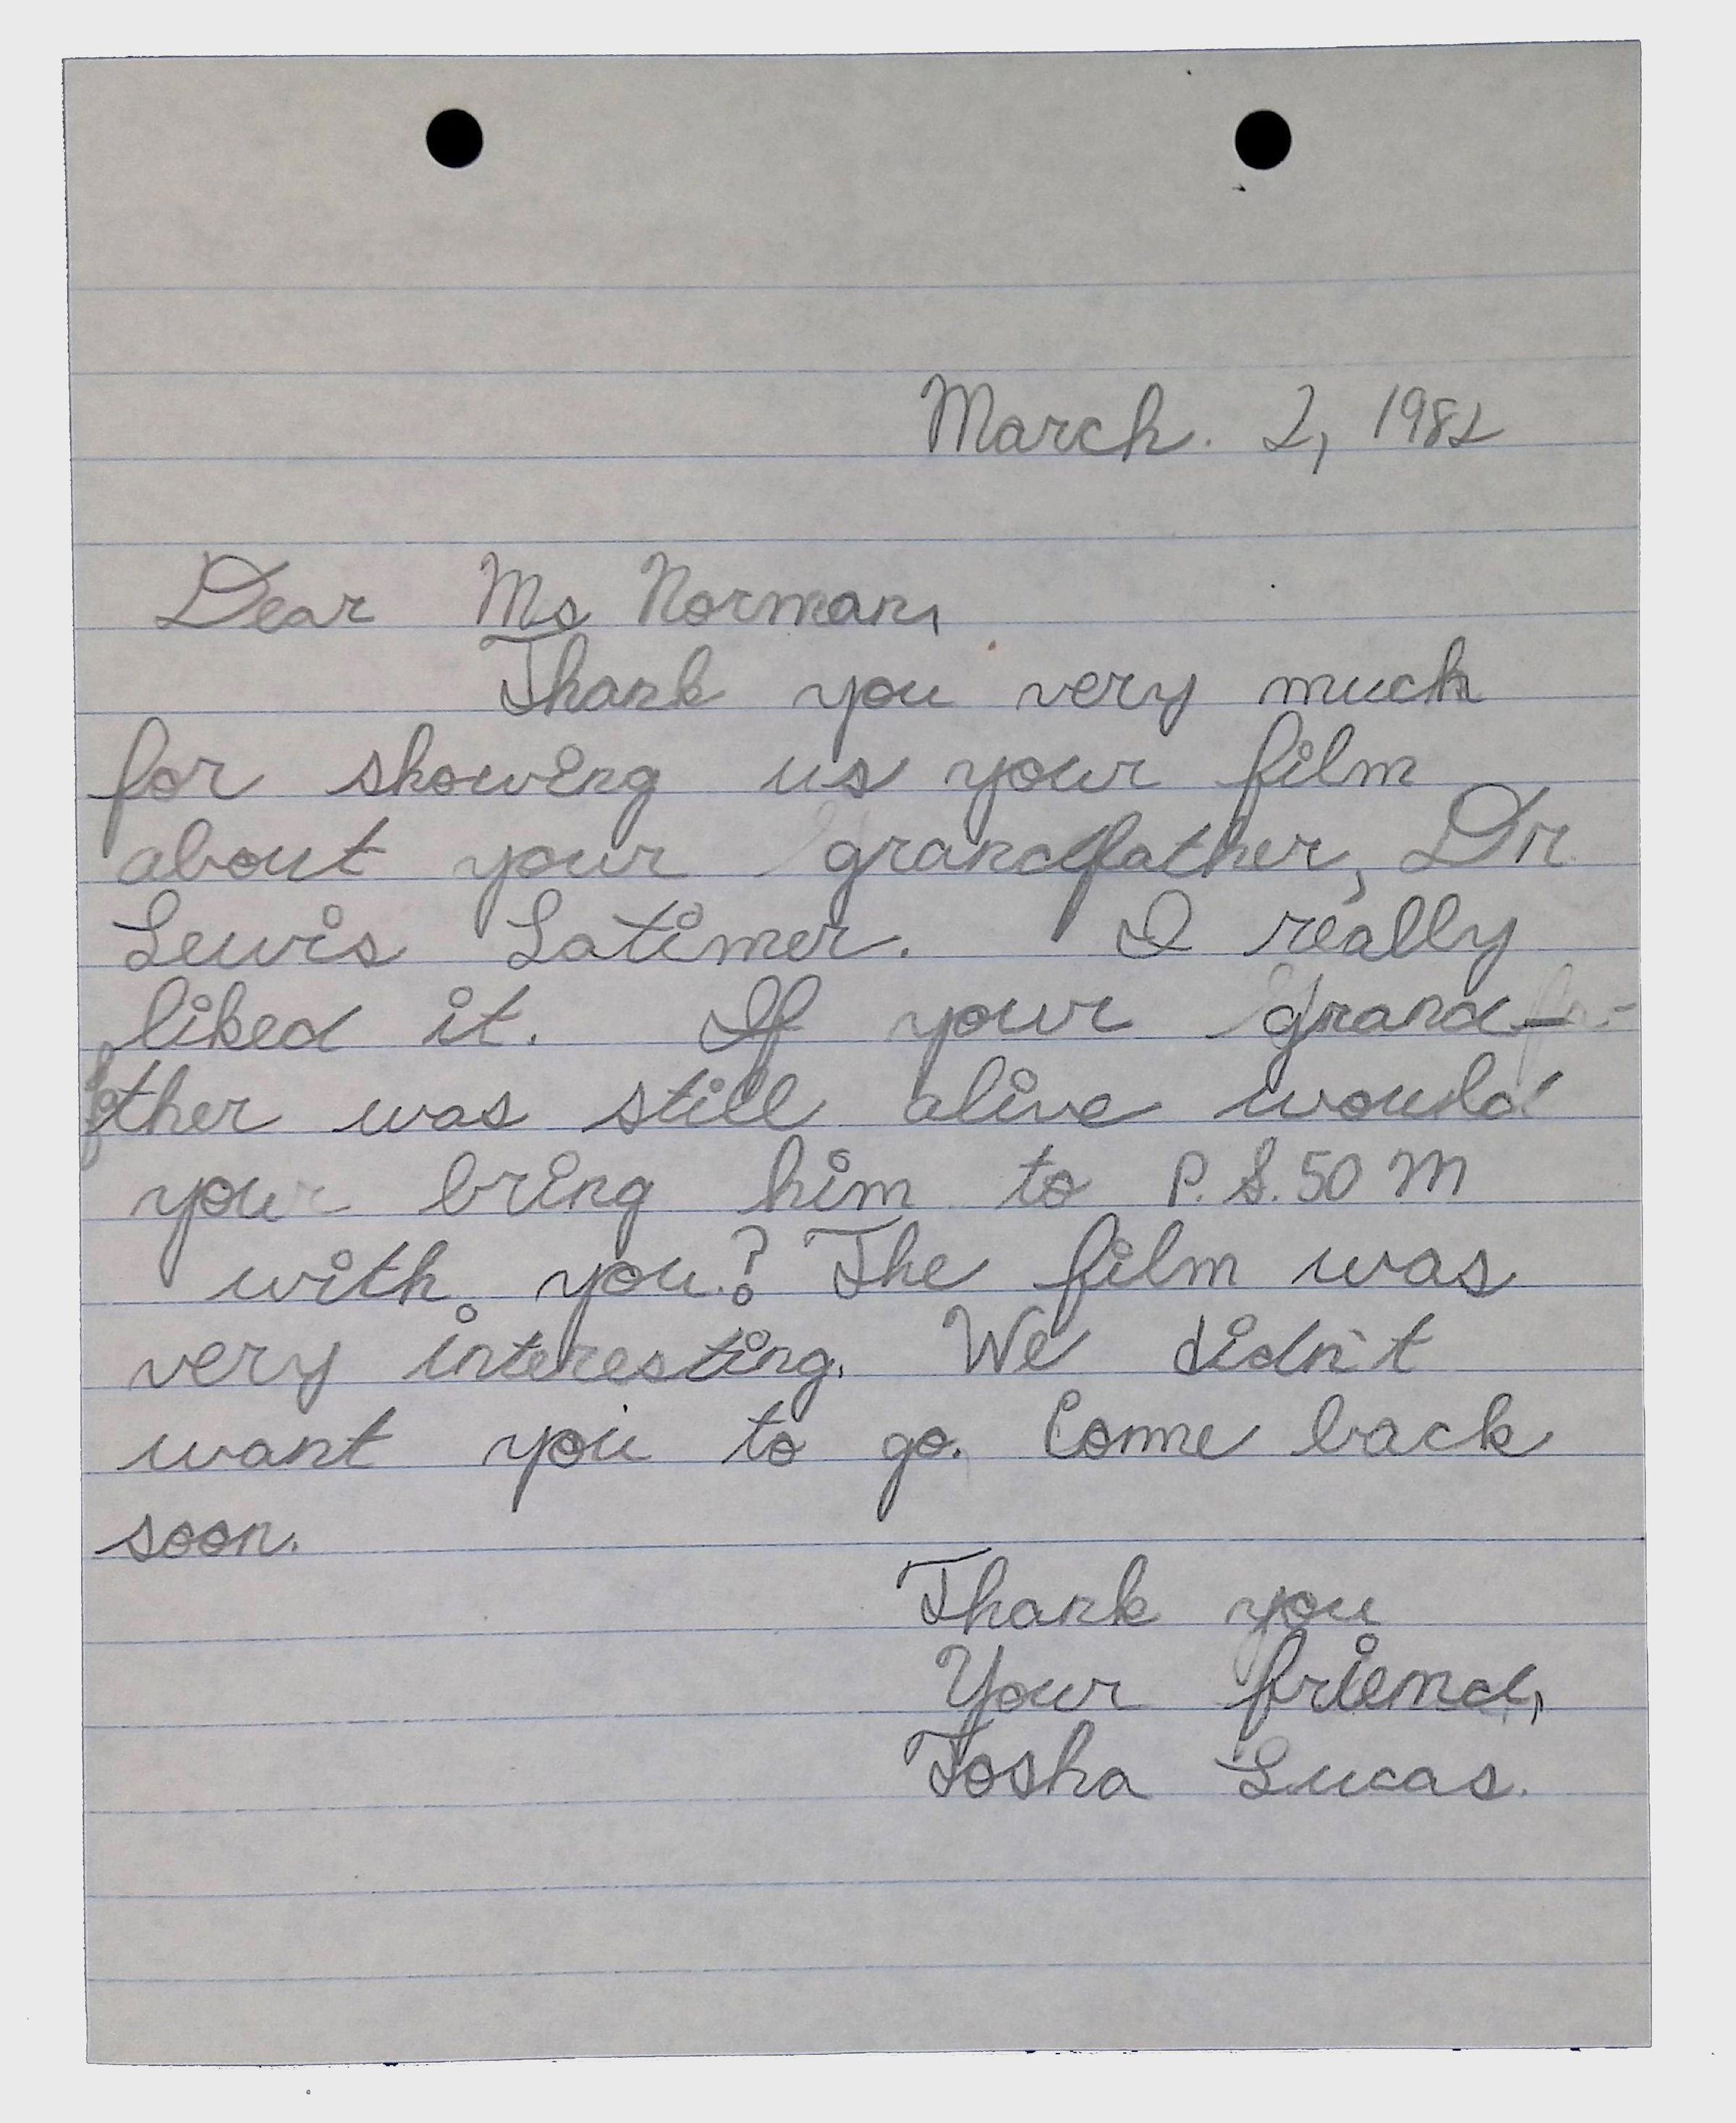 March. 2, 1982
Dear Ms Norman,
Thank you very much
for showing us your film
about your grandfather, Dr.
Lewis Latimer. I really
liked it. If your grand-
father was still alive would
you bring him to P.S. 50 M
with you? The film was
very interesting. We didn't
want you to go. Come back
soon.
Thank you
Your friend,
Tosha Lucas.